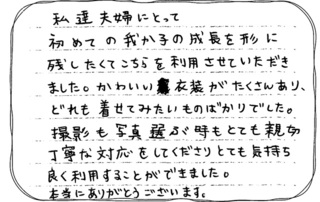 私達夫婦にとって
初めての我が子の成長を形に
残したくてこちらを利用させていただき
ました。かわいい衣装がたくさんあり、
どれも着せてみたいものばかりでした。
撮影も写真選ぶ時もとても親切
丁寧な対応をしてくださりとても気持ち
良く利用することができました。
本当にありがとうございます。